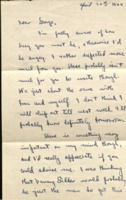 April 20th 1944
Dear George,
I'm fairly sure of how
busy you must be, otherwise I'd
be angry I rather expected more
mail from you. There probably isn't
much for you to write though.
It's just about the same with
him and myself. I don't think I
will ship out till next week. It'll
probably be tomorrow.
There is something very
important on my mind George,
and I'd really appreciate if you
could advise me. I was thinking
that Danny would probably
be just the man to get this